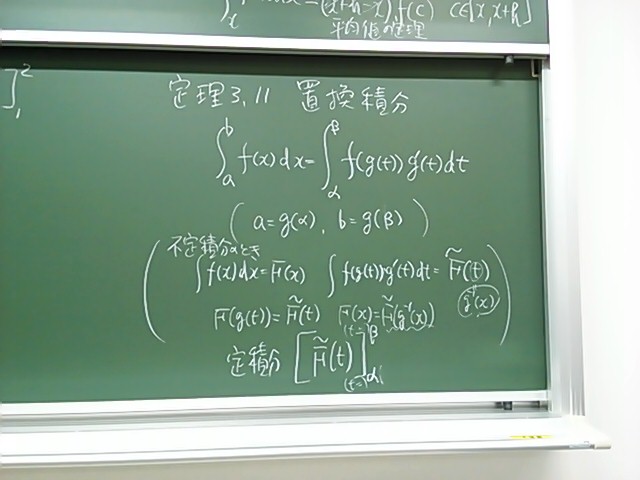 (x+h-x) f(c) c∈[x,x+h]
平均値の定理
]²₁
定理3.11 置換積分
∫_a^b f(x)dx=∫_α^β f(g(t))g'(t)dt
(a=g(α), b=g(β))
不定積分のとき
∫f(x)dx=F(x) ∫f(g(t))g'(t)dt=F̃(t)
g⁻¹(x)
F(g(t))=F̃(t) F(x)=F̃(g⁻¹(x))
定積分 [F̃(t)]_{(t=)α}^{(t=)β}